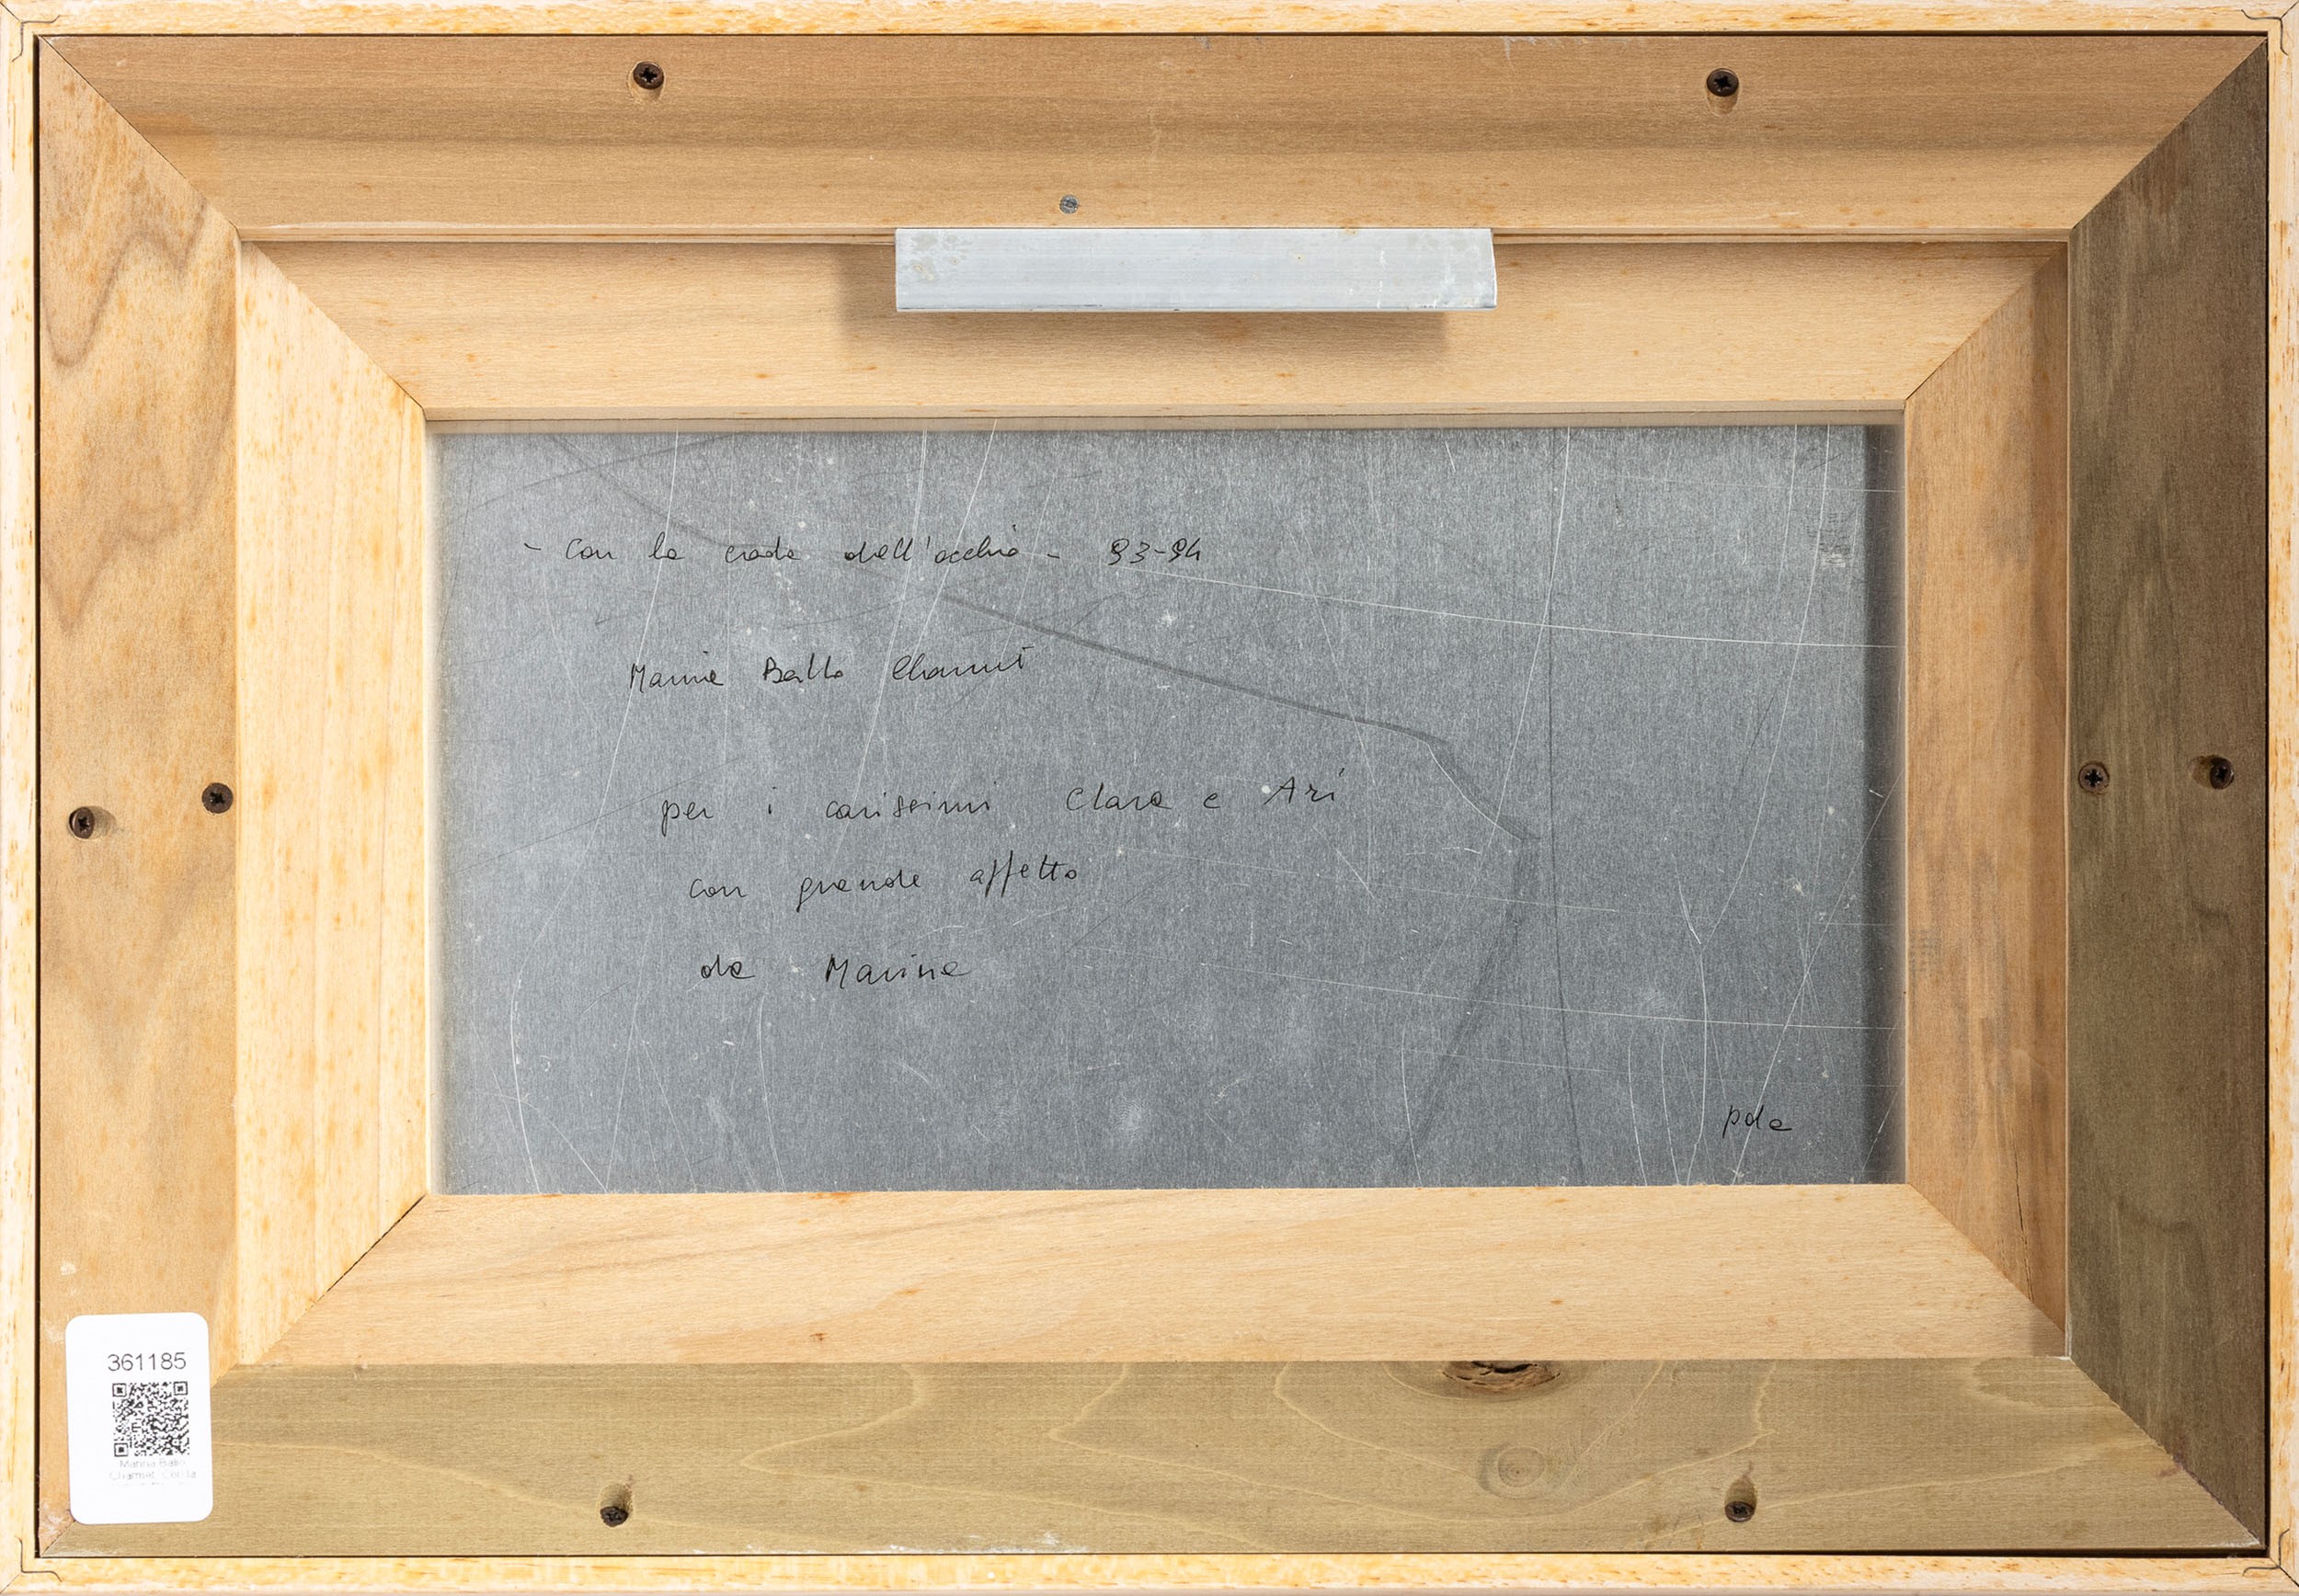 - Con la coda dell'occhio - 93-94
Marina Ballo Charmet
per i carissimi Clara e Ari
con grande affetto
da Marina
pda
361185
Marina Ballo
Charmet, Con la